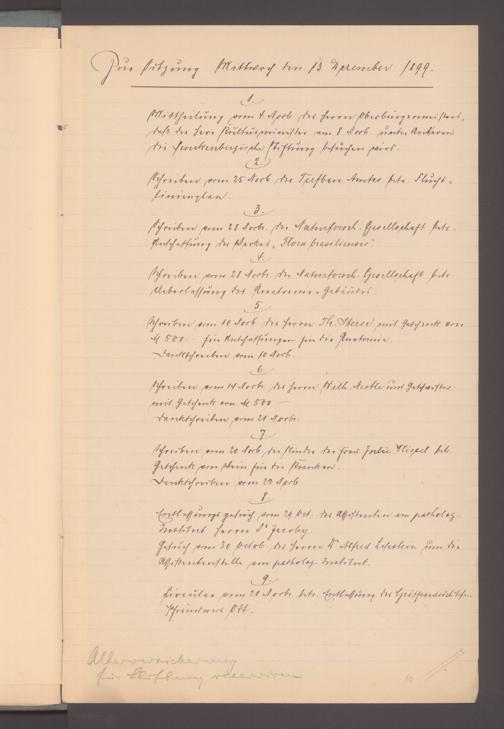 Zur Sitzung Mittwoch den 13 Dezember 1899.
1.
Mittheilung vom 4 Novb. des Herrn Oberbürgermeisters,
daß der Herr Kultusminister am 8 Novb. unter Anderem
die Senckenbergische Stiftung besuchen wird.
2.
Schreiben vom 25 Novb. des Tiefbau Amtes betr. Flucht-
linienplan.
3.
Schreiben vom 28 Novb. der Naturforsch. Gesellschaft betr.
Anschaffung des Werkes "Flora brasiliensis".
4.
Schreiben vom 28 Novb. der Naturforsch. Gesellschaft betr.
Ueberlassung des Anatomie-Gebäudes.
5.
Schreiben vom 10 Novb. des Herrn Th. Stern mit Geschenk von
M 500.– für Anschaffungen für die Anatomie.
Dankschreiben vom 10 Novb.
6.
Schreiben vom 14 Novb. des Herrn Wilh. und Geschwister
mit Geschenk von M 500 –
Dankschreiben vom 20 Novb.
7.
Schreiben vom 20 Novb. der Kinder der Frau betr.
Geschenk von Wein für die Kranken.
Dankschreiben vom 20 Novb
8.
Entlassungsgesuch vom 24 Oct. des Assistenten am patholog.
Institut Herrn Dr Jacoby.
Gesuch vom 30 Octob. des Herrn Dr Alfred um die
Assistentenstelle am patholog. Institut.
9.
Circular vom 20 Novb. betr. Entlassung des
Ott.
Altersversicherung
für Stiftung
10